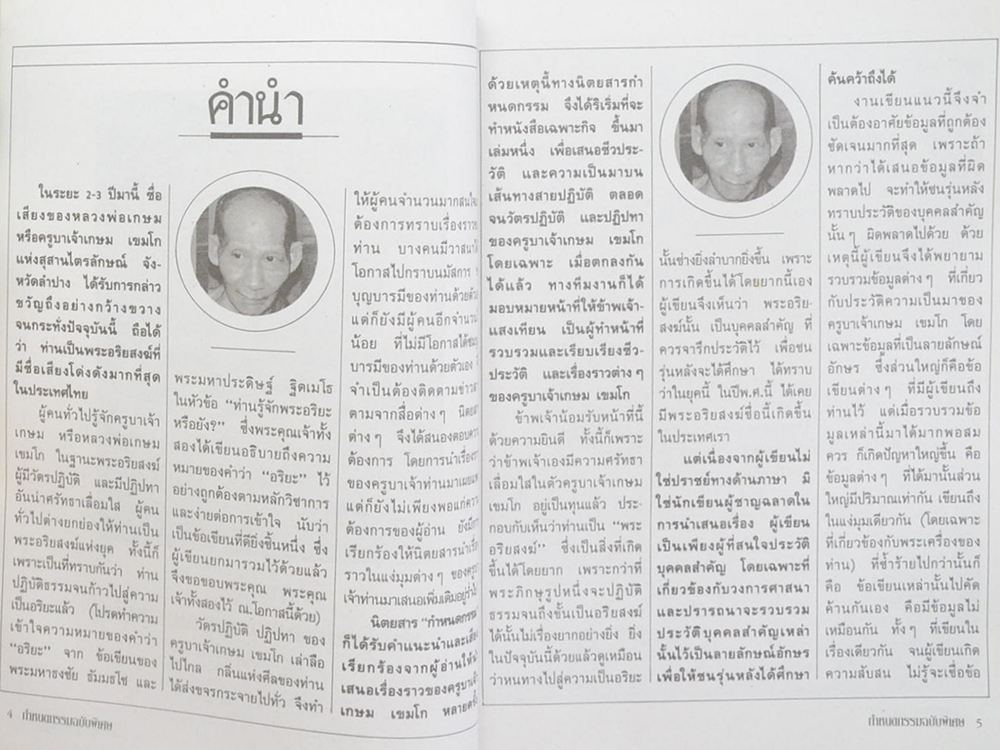 คำนำ
ในระยะ 2-3 ปีมานี้ ชื่อ
เสียงของหลวงพ่อเกษม
หรือครูบาเจ้าเกษม เขมโก
แห่งสุสานไตรลักษณ์ จัง-
หวัดลำปาง ได้รับการกล่าว
ขวัญถึงอย่างกว้างขวาง
จนกระทั่งปัจจุบันนี้ ถือได้
ว่า ท่านเป็นพระอริยสงฆ์ที่
มีชื่อเสียงโด่งดังมากที่สุด
ในประเทศไทย
ผู้คนทั่วไปรู้จักครูบาเจ้า
เกษม หรือหลวงพ่อเกษม
เขมโก ในฐานะพระอริยสงฆ์
ผู้มีวัตรปฏิบัติ และมีปฏิปทา
อันน่าศรัทธาเลื่อมใส ผู้คน
ทั่วไปต่างยกย่องให้ท่านเป็น
พระอริยสงฆ์แห่งยุค ทั้งนี้ก็
เพราะเป็นที่ทราบกันว่า ท่าน
ปฏิบัติธรรมจนก้าวไปสู่ความ
เป็นอริยะแล้ว (โปรดทำความ
เข้าใจความหมายของคำว่า
“อริยะ” จาก ข้อเขียนของ
พระมหาธงชัย ธัมมธโช และ
พระมหาประดิษฐ์ ฐิตเมโธ
ในหัวข้อ “ท่านรู้จักพระอริยะ
หรือยัง?” ซึ่งพระคุณเจ้าทั้ง
สองได้เขียนอธิบายถึงความ
หมายของคำว่า “อริยะ” ไว้
อย่างถูกต้องตามหลักวิชาการ
และง่ายต่อการเข้าใจ นับว่า
เป็นข้อเขียนที่ดียิ่งชิ้นหนึ่ง ซึ่ง
ผู้เขียนยกมารวมไว้ด้วยแล้ว
จึงขอขอบพระคุณ พระคุณ
เจ้าทั้งสองไว้ ณ.โอกาสนี้ด้วย)
วัตรปฏิบัติ ปฏิปทา ของ
ครูบาเจ้าเกษม เขมโก เล่าลือ
ไปไกล กลิ่นแห่งศีลของท่าน
ได้ส่งขจรกระจายไปทั่ว จึงทำ
ให้ผู้คนจำนวนมากสนใจ
ต้องการทราบเรื่องราว
ท่าน บางคนมีวาสนา
โอกาสไปกราบนมัสการ
บุญบารมีของท่านด้วยตัว
แต่ก็ยังมีผู้คนอีกจำนวน
น้อย ที่ไม่มีโอกาสได้
บารมีของท่านด้วยตัวเอง
จำเป็นต้องติดตามข่าว
ตามจากสื่อต่างๆ
ต่างๆ จึงได้สนองตอบ
ต้องการ โดยการนำเรื่อง
ครูบาเจ้าท่านมาเผยแพร่
แต่ก็ยังไม่เพียงพอแก่ความ
ต้องการของผู้อ่าน ยังมีการ
เรียกร้องให้นิตยสารนำเรื่อง
ราวในแง่มุมต่างๆ ของครูบา
เจ้าท่านมาเสนอเพิ่มเติมอยู่
นิตยสาร “กำหนดกรรม
ก็ได้รับคำแนะนำและเสียง
เรียกร้องจากผู้อ่านให้
เสนอเรื่องราวของครูบาเจ้า
เกษม เขมโก หลายครั้ง
4 กำหนดกรรมฉบับพิเศษ
ด้วยเหตุนี้ทางนิตยสารกำ
หนดกรรม จึงได้ริเริ่มที่จะ
ทำหนังสือเฉพาะกิจ ขึ้นมา
เล่มหนึ่ง เพื่อเสนอชีวประ-
วัติ และความเป็นมาบน
เส้นทางสายปฏิบัติ ตลอด
จนวัตรปฏิบัติ และปฏิปทา
ของครูบาเจ้าเกษม เขมโก
โดยเฉพาะ เมื่อตกลงกัน
ได้แล้ว ทางทีมงานก็ได้
มอบหมายหน้าที่ให้ข้าพเจ้า-
แสงเทียน เป็นผู้ทำหน้าที่
รวบรวมและเรียบเรียงชีว-
ประวัติ และเรื่องราวต่างๆ
ของครูบาเจ้าเกษม เขมโก
ข้าพเจ้าน้อมรับหน้าที่นี้
ด้วยความยินดี ทั้งนี้ก็เพราะ
ว่าข้าพเจ้าเองมีความศรัทธา
เลื่อมใสในตัวครูบาเจ้าเกษม
เขมโก อยู่เป็นทุนแล้ว ประ-
กอบกับเห็นว่าท่านเป็น “พระ
อริยสงฆ์” ซึ่งเป็นสิ่งที่เกิด
ขึ้นได้โดยยาก เพราะกว่าที่
พระภิกษุรูปหนึ่งจะปฏิบัติ
ธรรมจนถึงขั้นเป็นอริยสงฆ์
ได้นั้นไม่เรื่องยากอย่างยิ่ง ยิ่ง
ในปัจจุบันนี้ด้วยแล้วดูเหมือน
ว่าหนทางไปสู่ความเป็นอริยะ
นั้นช่างยิ่งลำบากยิ่งขึ้น เพราะ
การเกิดขึ้นได้โดยยากนี้เอง
ผู้เขียนจึงเห็นว่า พระอริย-
สงฆ์นั้น เป็นบุคคลสำคัญ ที่
ควรจารึกประวัติไว้ เพื่อชน
รุ่นหลังจะได้ศึกษา ได้ทราบ
ว่าในยุคนี้ ในปีพ.ศ.นี้ ได้เคย
มีพระอริยสงฆ์ชื่อนี้เกิดขึ้น
ในประเทศเรา
แต่เนื่องจากผู้เขียนไม่
ใช่ปราชย์ทางด้านภาษา มิ
ใช่นักเขียนผู้ชาญฉลาดใน
การนำเสนอเรื่อง ผู้เขียน
เป็นเพียงผู้ที่สนใจประวัติ
บุคคลสำคัญ โดยเฉพาะที่
เกี่ยวข้องกับวงการศาสนา
และปรารถนาจะรวบรวม
ประวัติบุคคลสำคัญเหล่า
นั้นไว้เป็นลายลักษณ์อักษร
เพื่อให้ชนรุ่นหลังได้ศึกษา
ค้นคว้าถึงได้
งานเขียนแนวนี้จึงจำ
เป็นต้องอาศัยข้อมูลที่ถูกต้อง
ชัดเจนมากที่สุด เพราะถ้า
หากว่าได้เสนอข้อมูลที่ผิด
พลาดไป จะทำให้ชนรุ่นหลัง
ทราบประวัติของบุคคลสำคัญ
นั้นๆ ผิดพลาดไปด้วย ด้วย
เหตุนี้ผู้เขียนจึงได้พยายาม
รวบรวมข้อมูลต่างๆ ที่เกี่ยว
กับประวัติความเป็นมาของ
ครูบาเจ้าเกษม เขมโก โดย
เฉพาะข้อมูลที่เป็นลายลักษณ์
อักษร ซึ่งส่วนใหญ่ก็คือข้อ
เขียนต่างๆ ที่มีผู้เขียนถึง
ท่านไว้ แต่เมื่อรวบรวมข้อ
มูลเหล่านี้มาได้มากพอสม
ควร ก็เกิดปัญหาใหญ่ขึ้น คือ
ข้อมูลต่างๆ ที่ได้มานั้นส่วน
ใหญ่มีปริมาณเท่ากัน เขียนถึง
ในแง่มุมเดียวกัน (โดยเฉพาะ
ที่เกี่ยวข้องกับพระเครื่องของ
ท่าน) ที่ซ้ำร้ายไปกว่านั้นก็
คือ ข้อเขียนเหล่านั้นไปคัด
ค้านกันเอง คือมีข้อมูลไม่
เหมือนกัน ทั้งๆ ที่เขียนใน
เรื่องเดียวกัน จนผู้เขียนเกิด
ความสับสน ไม่รู้จะเชื่อข้อ
กำหนดกรรมฉบับพิเศษ 5